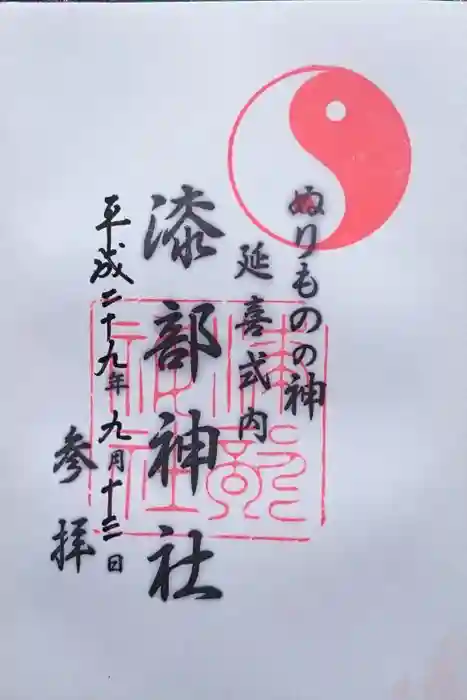 ぬりものの神
延喜式内
漆部神社
平成二十九年九月十三日
参拝